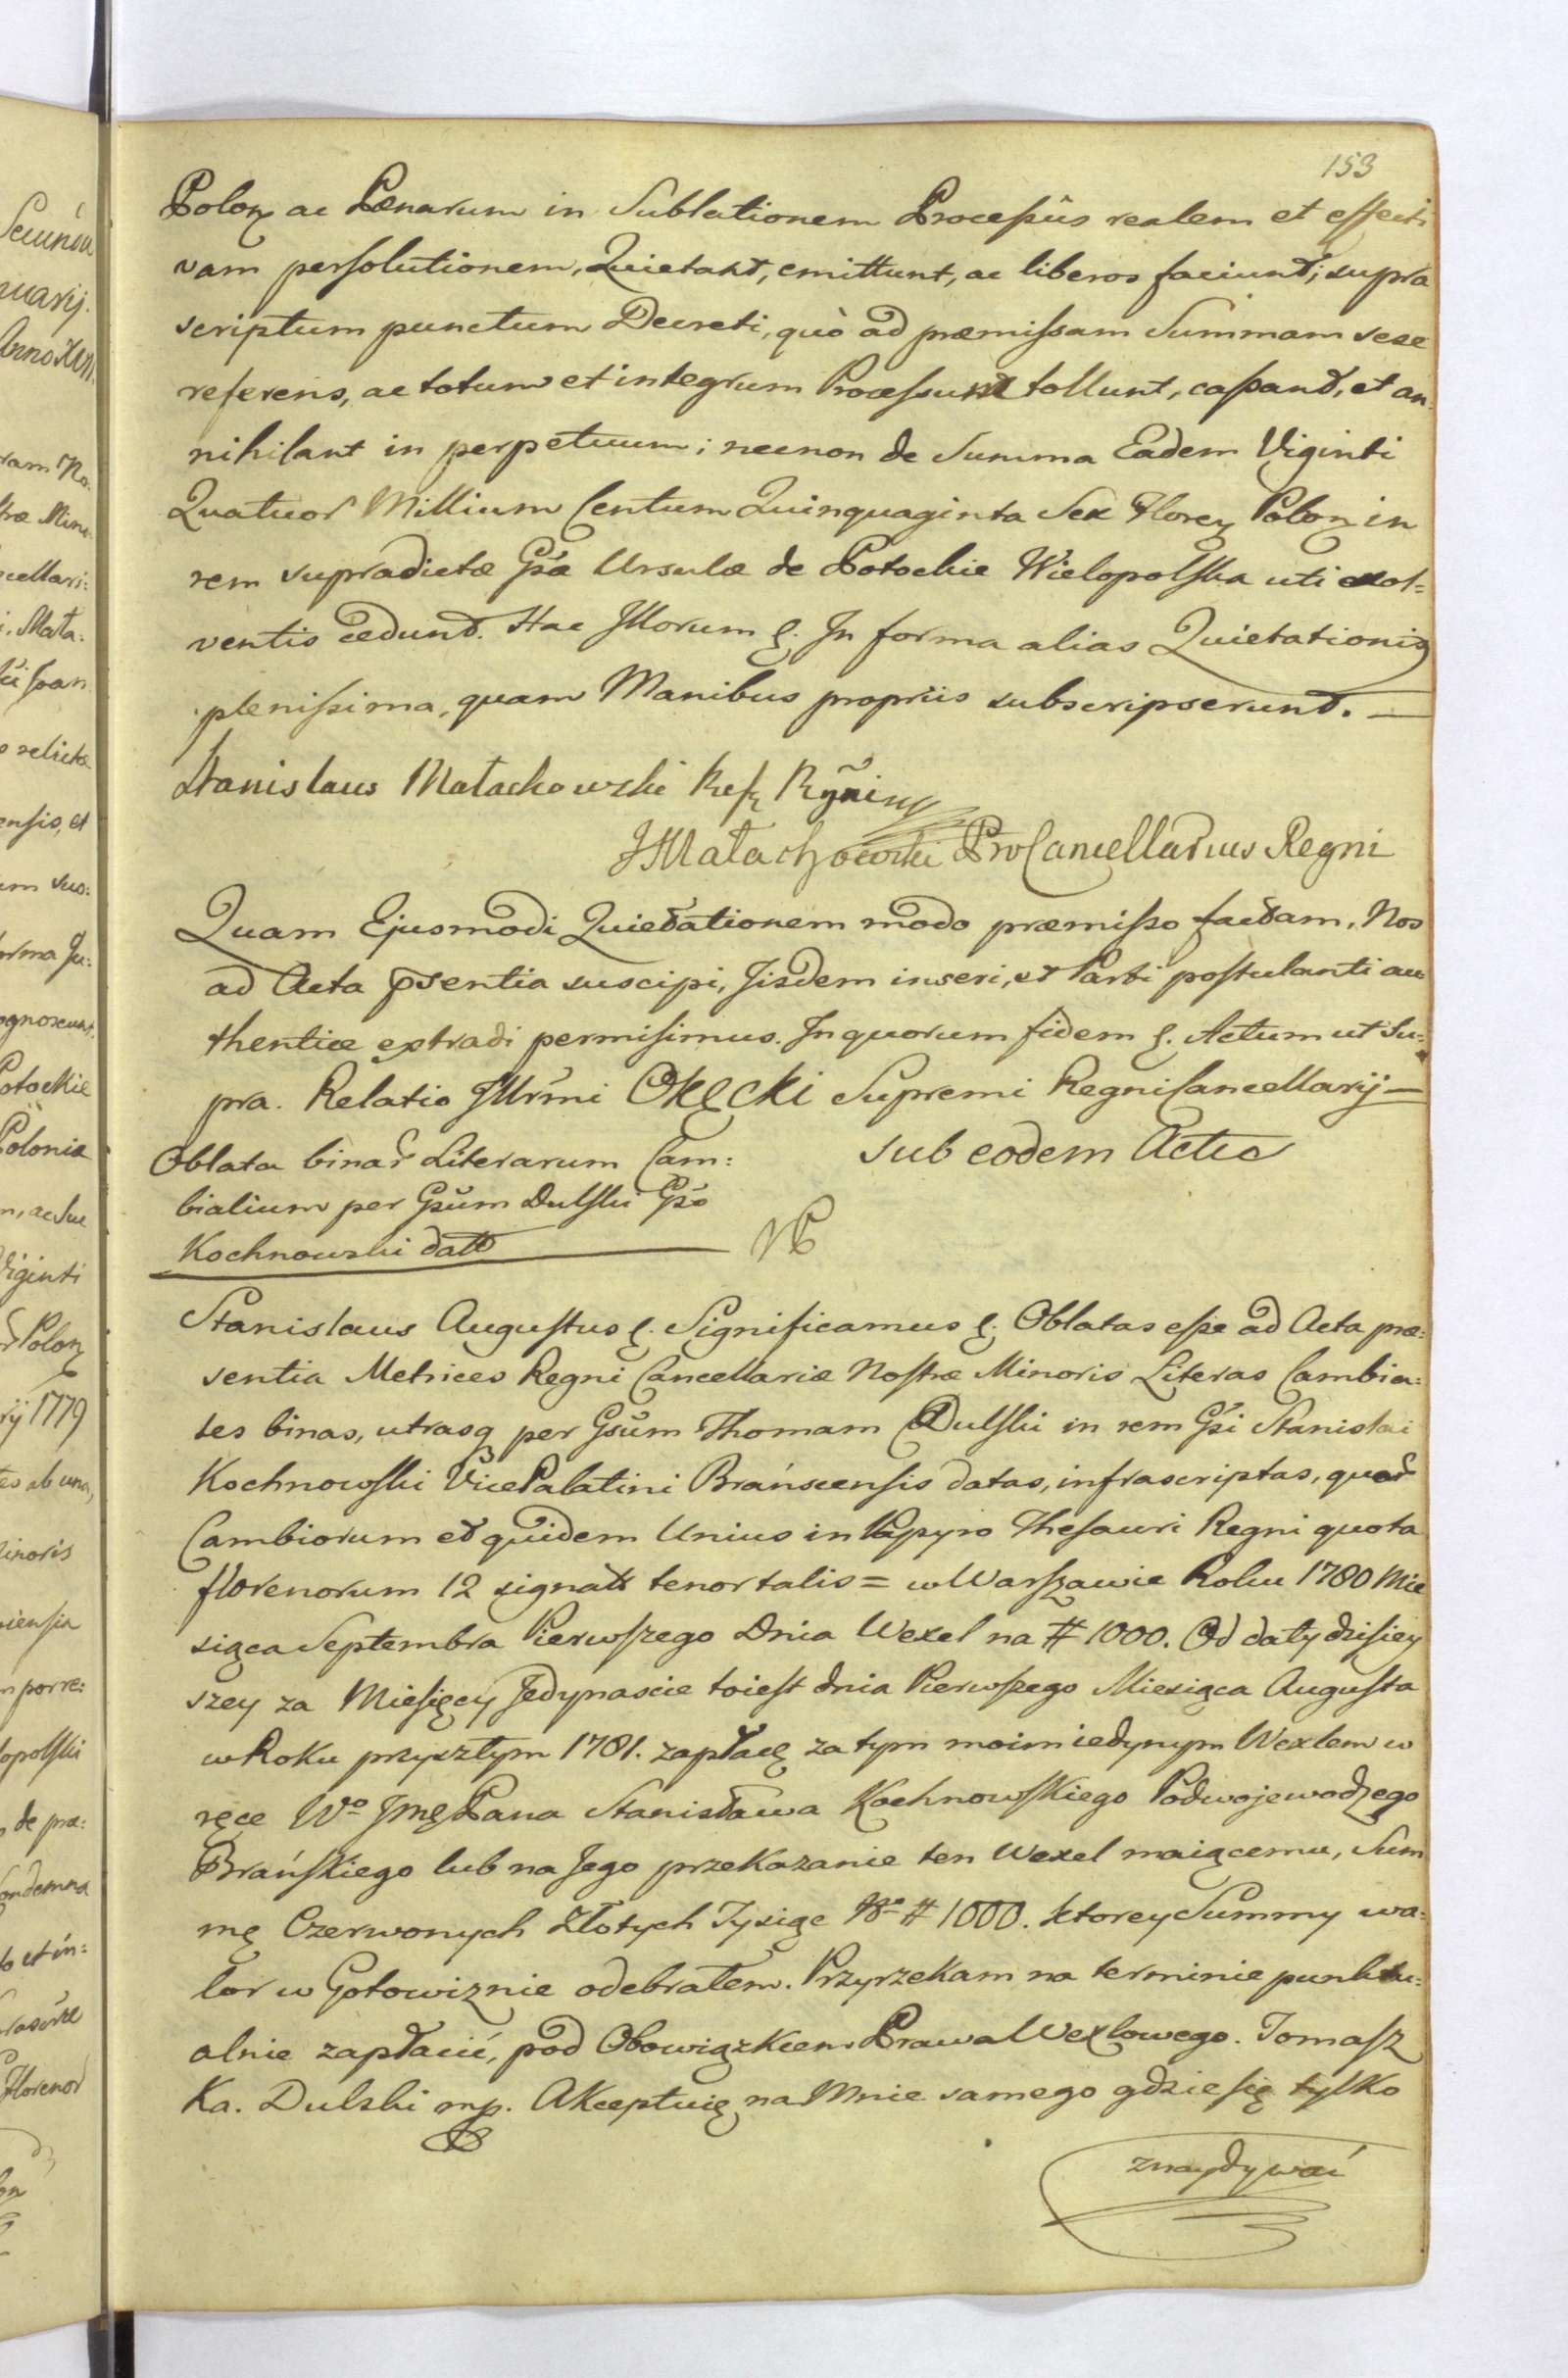 153
Polon ac Pænarum in Sublationem Processûs realem et effecti
vam persolutionem, Quietant, emittunt, ac liberos faciunt; supra
scriptum punctum Decreti, quò ad præmissam Summam sese
referens, ac totum et integrum Processum tollunt, cassant, et an:
nihilant in perpetuum; necnon de Summa Eadem Viginti
Quatuor Millium Centum Quinquaginta Sex Floren Polon in
rem supradictæ Gsæ Ursulæ de Potockie Wielopolska uti exol=
ventis cedunt. Hac Illorum &. In forma alias Quietationis
plenissima, quam Manibus propriis subscripserunt. —
Stanislaus Małachowski Ref Rgni mp
JMałachowski ProCancellarius Regni
Quam Ejusmodi Quietationem modo præmisso factam, Nos
ad Acta psentia suscipi, Iisdem inseri, et Parti postulanti au
thentice extradi permisimus. In quorum fidem &. Actum ut Su:
pra. Relatio Illrmi Okęcki Supremi Regni Cancellarij —
Oblata binar Literarum Cam:
bialium per Gsum Dulski Gso
Kochnowski dat
sub eodem Actu
Stanislaus Augustus &. Significamus &. Oblatas esse ad Acta præ:
sentia Metrices Regni Cancellariæ Nostræ Minoris Literas Cambia:
les binas, utrasq per Gsum Thomam Dulski in rem Gsi Stanislai
Kochnowski VicePalatini Brańscensis datas, infrascriptas, quar
Cambiorum et quidem Unius in Papyro Thesauri Regni quota
florenorum 12 signat tenor talis = w Warszawie Roku 1780 Mie
siąca Septembra Pierwszego Dnia Wexel na # 1000. Od daty dzisiey
szey za Miesięcy Jedynaście toiest dnia Pierwszego Miesiąca Augusta
w Roku przyszłym 1781. zapłacę za tym moim iedynym Wexlem w
ręce Wo JmęPana Stanisława Kochnowskiego Podwojewodzego
Brańskiego lub na Jego przekazanie ten Wexel maiącemu, Sum
mę Czerwonych Złotych Tysiąc No # 1000. ktorey Summy wa:
lor w Gotowiznie odebrałem. Przyrzekam na terminie punktu:
alnie zapłacić, pod Obowiązkiem Prawa Wexlowego. Tomasz
Ka. Dulski mp. Akceptuię na Mnie samego gdzie się tylko
znaydywać